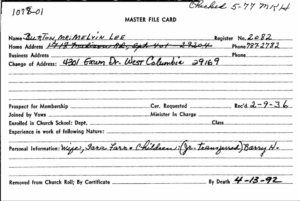 1078-01 Checked 5-77 MKH
MASTER FILE CARD
Name Burton, Mr. Melvin Lee Register No. 2082
Home Address Phone 787-2782
Business Address Phone
Change of Address: 4301 Exum Dr. West Columbia 29169
Prospect for Membership Cor. Requested Rec'd. 2-9-36
Joined by Vows Minister In Charge
Enrolled in Church School: Dept. Class
Experience in work of following Nature:
Personal Information: Wife, Sara Children: (Jr. transferred) Barry H.
Removed from Church Roll; By Certificate By Death 4-13-92